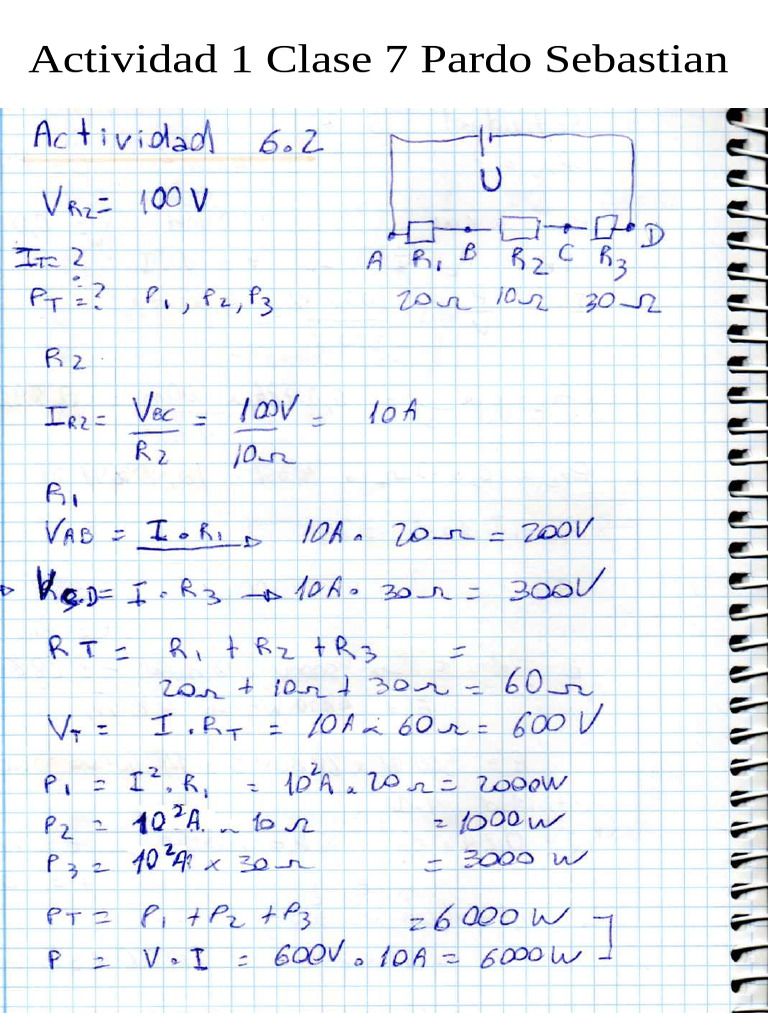 Actividad 1 Clase 7 Pardo Sebastian
Actividad 6.2
VR2= 100V
U
IT= ?
A R1 B R2 C R3 D
PT =? P1, P2, P3
20Ω 10Ω 30Ω
R2
IR2= VBC/R2 = 100V/10Ω = 10A
R1
VAB = I • R1 → 10A • 20Ω = 200V
VCD= I • R3 → 10A • 30Ω = 300V
RT = R1 + R2 + R3 =
20Ω + 10Ω + 30Ω = 60Ω
VT = I . RT = 10A × 60Ω = 600V
P1 = I². R1 = 10²A . 20Ω = 2000W
P2 = 10²A . 10Ω = 1000W
P3 = 10²A × 30Ω = 3000 W
PT = P1 + P2 + P3 = 6000 W
P = V • I = 600V • 10A = 6000W